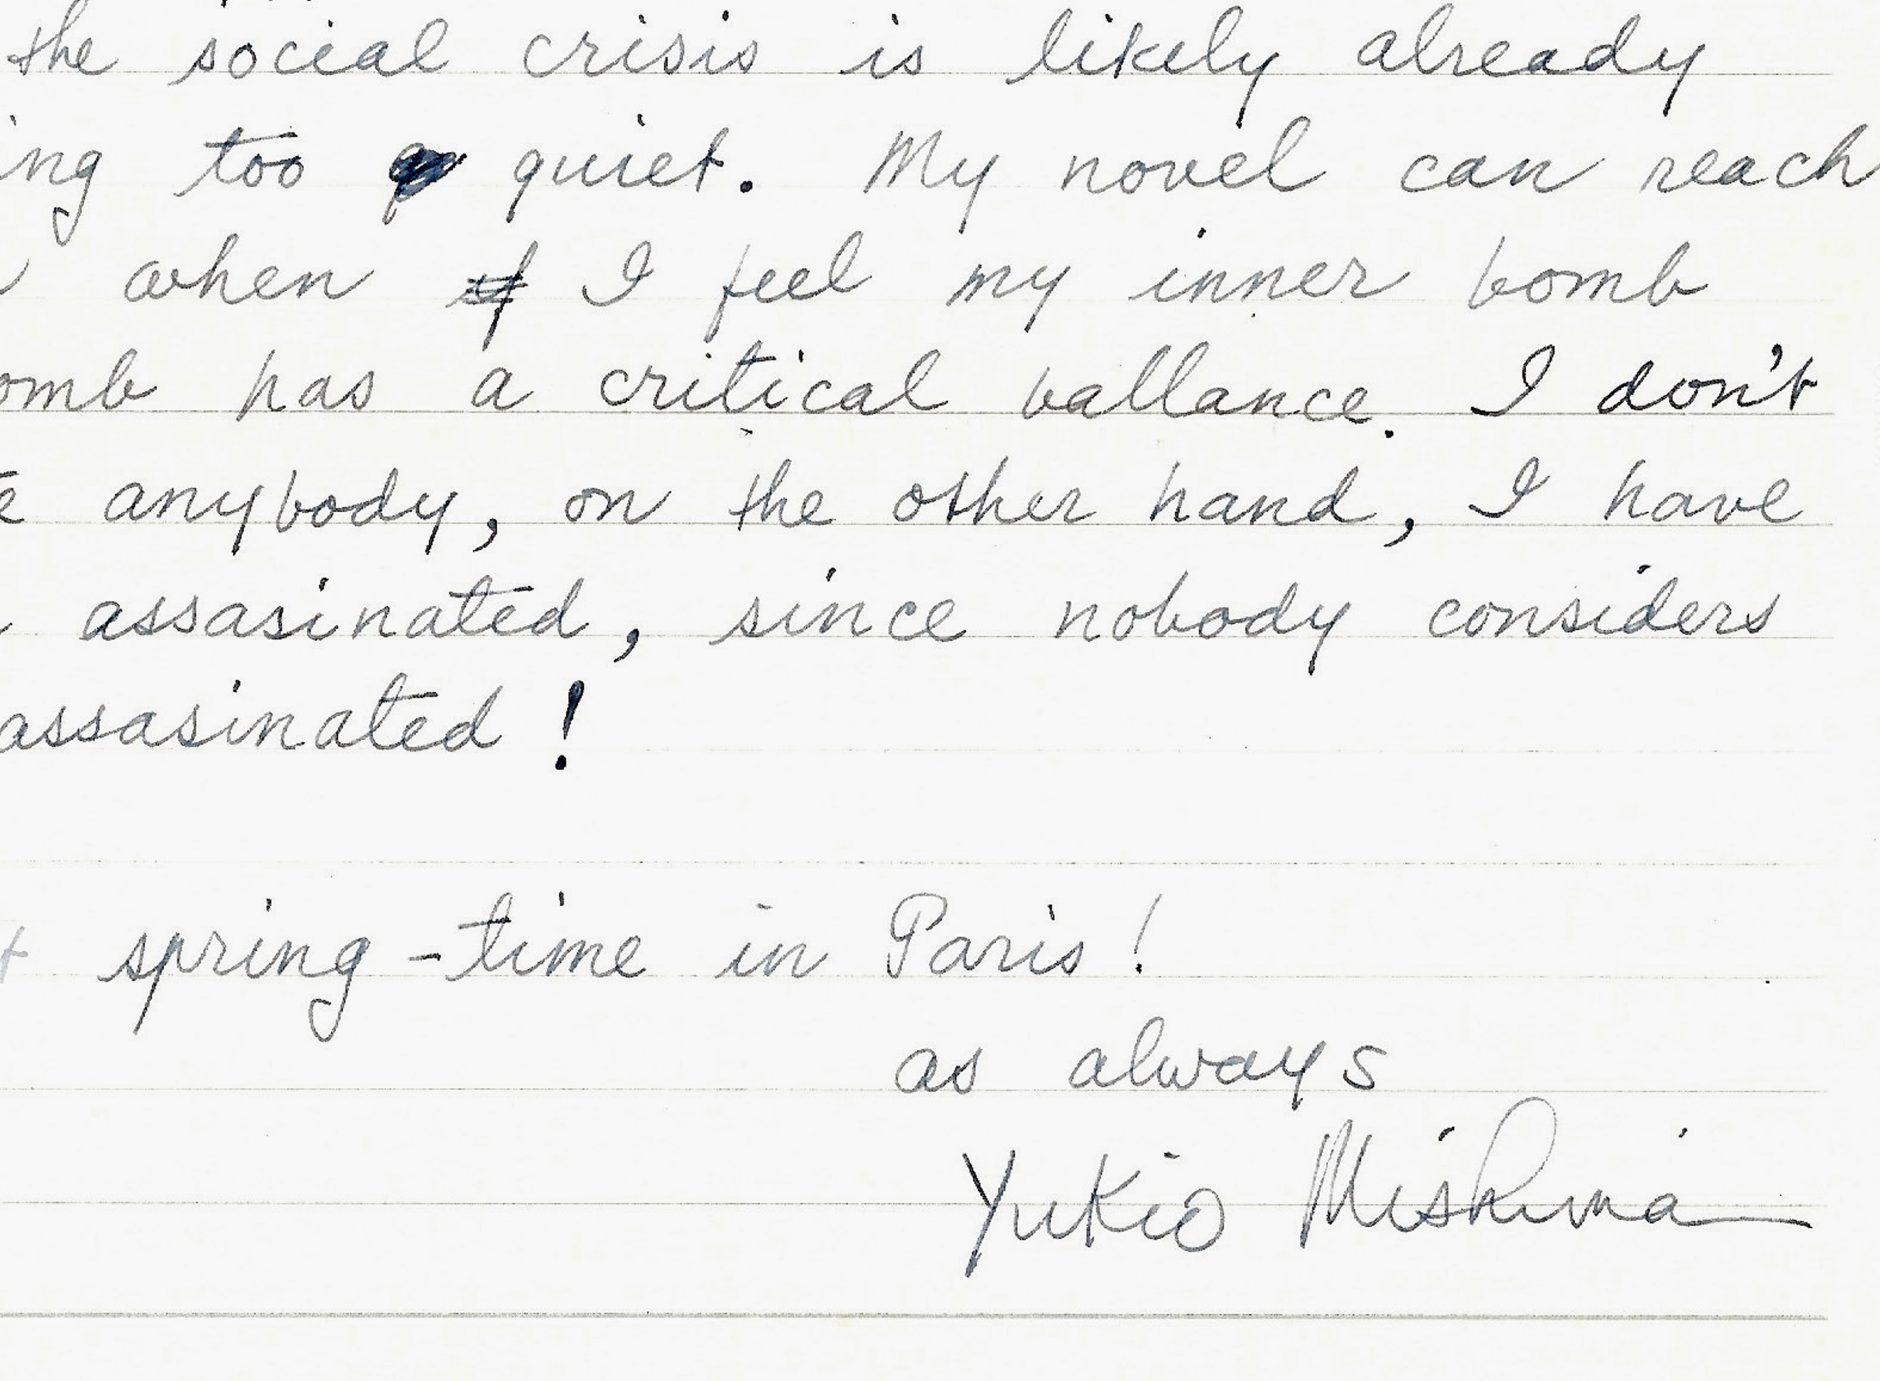 the social crisis is likely already
ing too quiet. My novel can reach
when if I feel my inner bomb
omb has a critical ballance. I don't
e anybody, on the other hand, I have
assasinated, since nobody considers
assasinated!
spring-time in Paris!
as always
Yukio Mishima